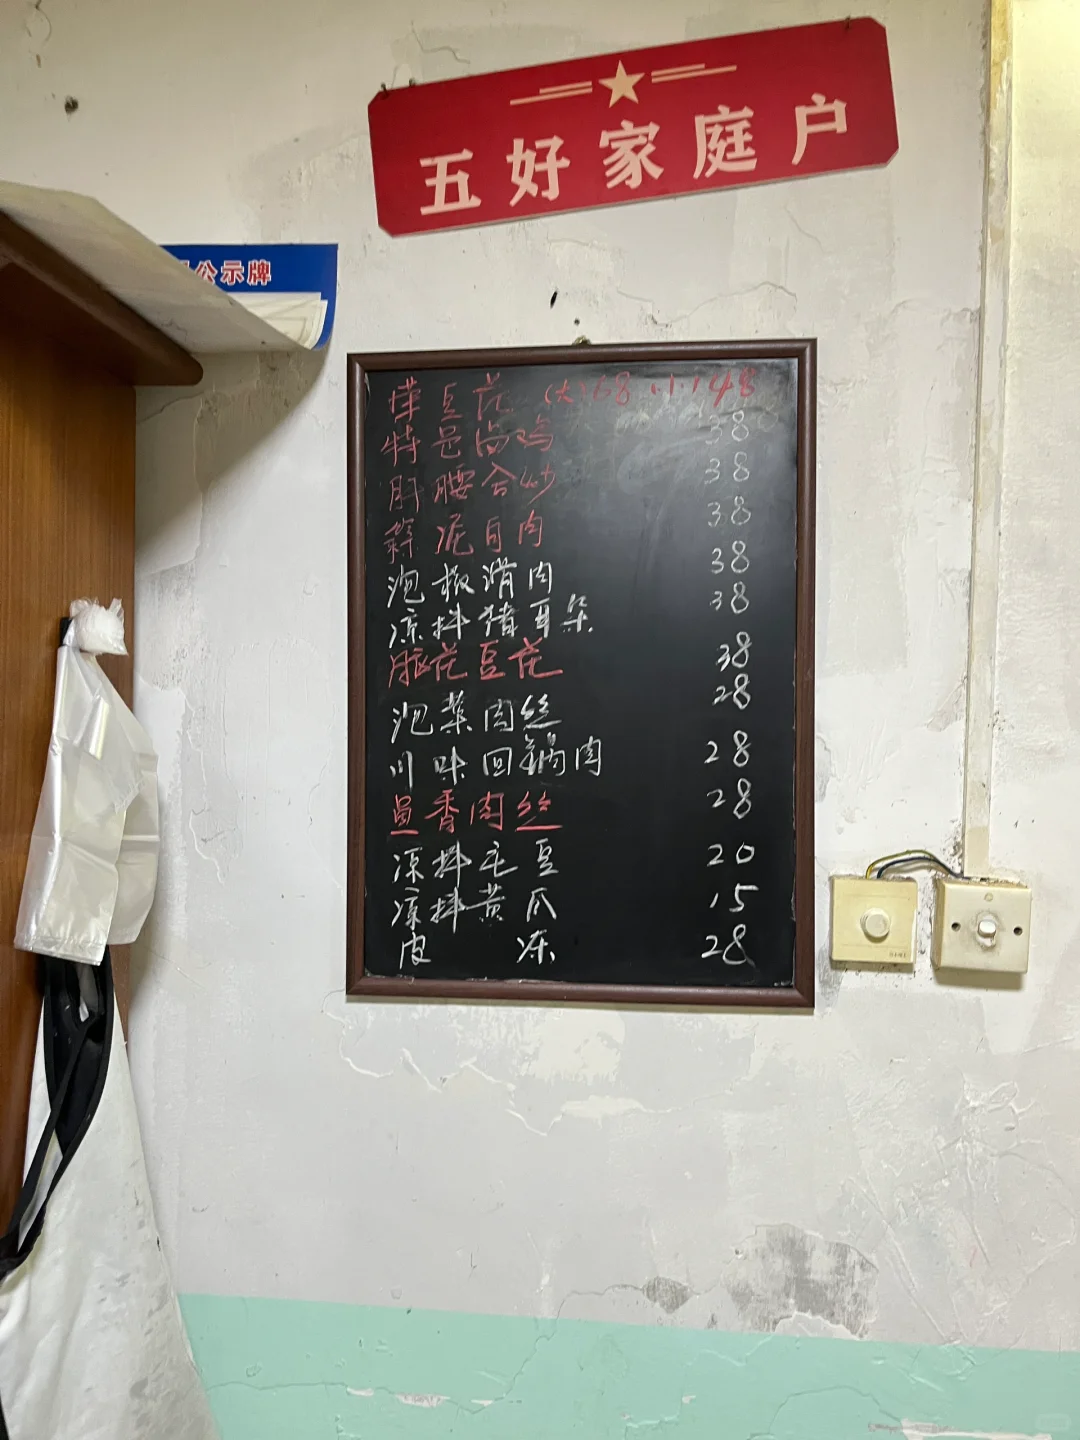 五好家庭户
公示牌
豆花 (大)68 小48
特色卤鸡 38
肝腰合炒 38
蒜泥白肉 38
泡椒滑肉 38
凉拌猪耳朵 38
脑花豆花 38
泡菜肉丝 28
川味回锅肉 28
鱼香肉丝 28
凉拌毛豆 20
凉拌黄瓜 15
皮冻 28